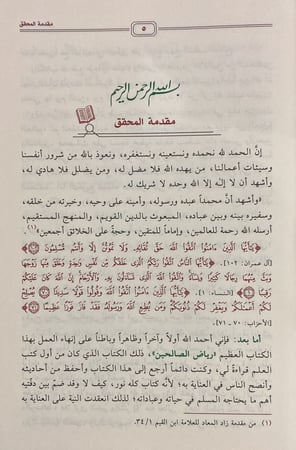 مقدمة المحقق
٥
بسم الله الرحمن الرحيم
مقدمة المحقق
إنَّ الحمد لله نحمده ونستعينه ونستغفره، ونعوذ بالله من شرور أنفسنا
وسيئات أعمالنا، من يهده الله فلا مضل له، ومن يضلل فلا هادي له،
وأشهد أن لا إلٰه إلا الله وحده لا شريك له.
وأشهد أنَّ محمداً عبده ورسوله، وأمينه على وحيه، وخيرته من خلقه،
وسفيره بينه وبين عباده، المبعوث بالدين القويم، والمنهج المستقيم،
أرسله الله رحمة للعالمين، وإماماً للمتقين، وحجةً على الخلائق أجمعين(١).
﴿يَٰٓأَيُّهَا ٱلَّذِينَ ءَامَنُوا۟ ٱتَّقُوا۟ ٱللَّهَ حَقَّ تُقَاتِهِۦ وَلَا تَمُوتُنَّ إِلَّا وَأَنتُم مُّسْلِمُونَ ﴾
[آل عمران: ١٠٢]. ﴿يَٰٓأَيُّهَا ٱلنَّاسُ ٱتَّقُوا۟ رَبَّكُمُ ٱلَّذِى خَلَقَكُم مِّن نَّفْسٍ وَٰحِدَةٍ وَخَلَقَ مِنْهَا زَوْجَهَا
وَبَثَّ مِنْهُمَا رِجَالًا كَثِيرًا وَنِسَآءً وَٱتَّقُوا۟ ٱللَّهَ ٱلَّذِى تَسَآءَلُونَ بِهِۦ وَٱلْأَرْحَامَ إِنَّ ٱللَّهَ كَانَ عَلَيْكُمْ
رَقِيبًا ﴾ [النساء: ١]. ﴿يَٰٓأَيُّهَا ٱلَّذِينَ ءَامَنُوا۟ ٱتَّقُوا۟ ٱللَّهَ وَقُولُوا۟ قَوْلًا سَدِيدًا يُصْلِحْ
لَكُمْ أَعْمَٰلَكُمْ وَيَغْفِرْ لَكُمْ ذُنُوبَكُمْ وَمَن يُطِعِ ٱللَّهَ وَرَسُولَهُۥ فَقَدْ فَازَ فَوْزًا عَظِيمًا ﴾
[الأحزاب: ٧٠ ـ ٧١].
أما بعد: فإني أحمد الله أولاً وآخراً وظاهراً وباطناً على إنهاء العمل بهذا
الكتاب العظيم «رياض الصالحين»، ذلك الكتاب الذي كان من أول كتب
العلم قراءةً لي، وكنت دائماً أرجع إلى هذا الكتاب وأحفظ من أحاديثه
وأنصح الناس في العناية به؛ لأنَّه كتاب كله نور، كيف لا وقد ضمَّ بين دفَّتيه
أهم ما يحتاجه المسلم في حياته وعباداته؛ لذلك انعقدت النية على العناية به
(١) من مقدمة زاد المعاد للعلامة ابن القيم ٣٤/١.